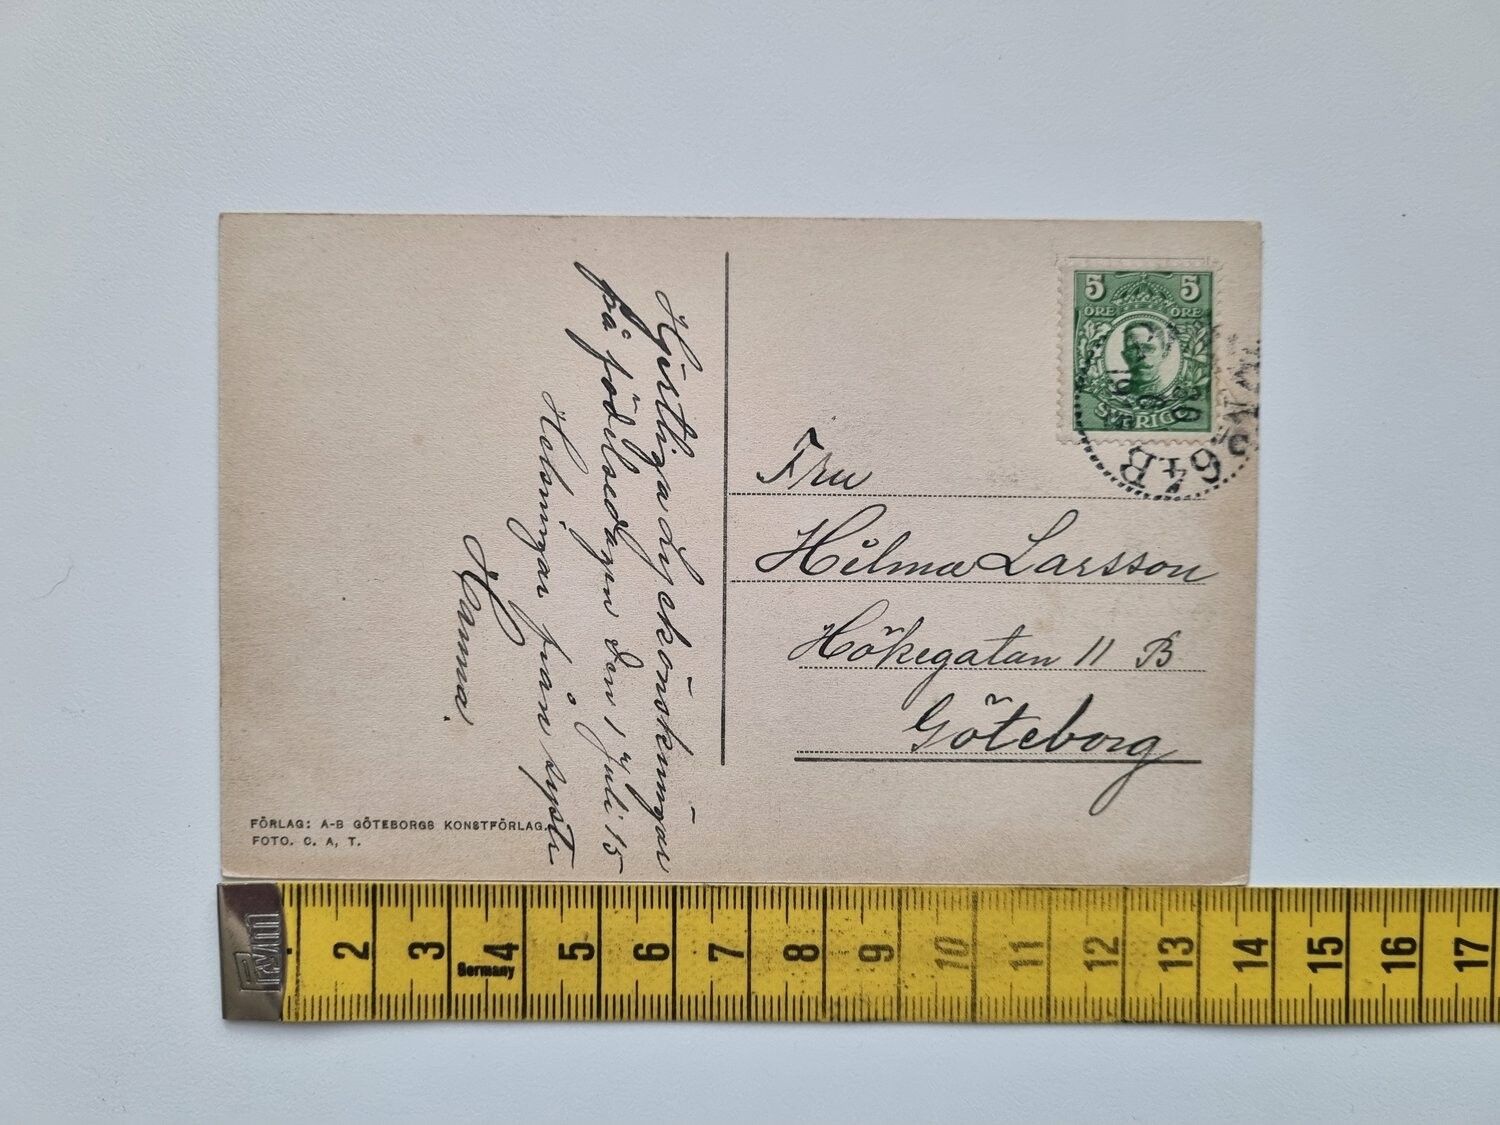 Hjertliga Lyckönskningar
på födelsedagen den 1 Juli 15
Helsningar från syster
Hanna.
FÖRLAG: A-B GÖTEBORGS KONSTFÖRLAG.
FOTO. C. A. T.
5 5
ÖRE ÖRE
SVERIGE
64B
Fru
Hilma Larsson
Hökegatan 11 B
Göteborg
2 3 4 5 6 7 8 9 10 11 12 13 14 15 16 17
Germany